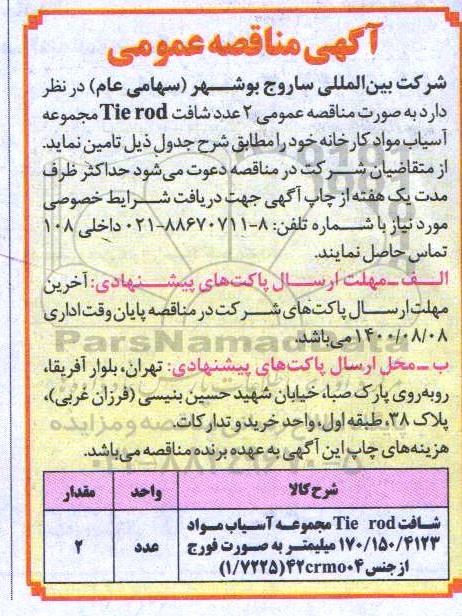 آگهی مناقصه عمومی
شرکت بین‌المللی ساروج بوشهر (سهامی عام) در نظر
دارد به صورت مناقصه عمومی ۲ عدد شافت Tie rod مجموعه
آسیاب مواد کارخانه خود را مطابق شرح جدول ذیل تامین نماید.
از متقاضیان شرکت در مناقصه دعوت می‌شود حداکثر ظرف
مدت یک هفته از چاپ آگهی جهت دریافت شرایط خصوصی
مورد نیاز با شماره تلفن: ۸-۸۸۶۷۰۷۱۱-۰۲۱ داخلی ۱۰۸
تماس حاصل نمایند.
الف - مهلت ارسال پاکت‌های پیشنهادی: آخرین
مهلت ارسال پاکت‌های شرکت در مناقصه پایان وقت اداری
۱۴۰۰/۰۸/۰۸ می‌باشد.
ب - محل ارسال پاکت‌های پیشنهادی: تهران، بلوار آفریقا،
روبه‌روی پارک صبا، خیابان شهید حسین بنیسی (فرزان غربی)،
پلاک ۳۸، طبقه اول، واحد خرید و تدارکات.
هزینه‌های چاپ این آگهی به عهده برنده مناقصه می‌باشد.
شرح کالا واحد مقدار
شافت Tie rod مجموعه آسیاب مواد
۱۷۰/۱۵۰/۴۱۲۳ میلیمتر به صورت فورج عدد ۲
از جنس ۴۲crmo۴ (۱/۷۲۲۵)
ParsNamadData